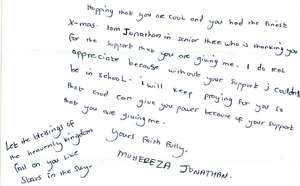 Hopping that you are cool and you had the finest
X-mas. Iam Jonathan in senior thee who is thanking you
for the support that you are giving me. I do real
appreciate because without your support I couldn't
be in school. i will keep praying for you so
that God can give you power because of your support
that you are giving me.
Yours Faith Fully.
MUHEREZA JONATHAN.
Let the blessings of
the heavenly kingdom
fall on you like
Stars in the Sky.